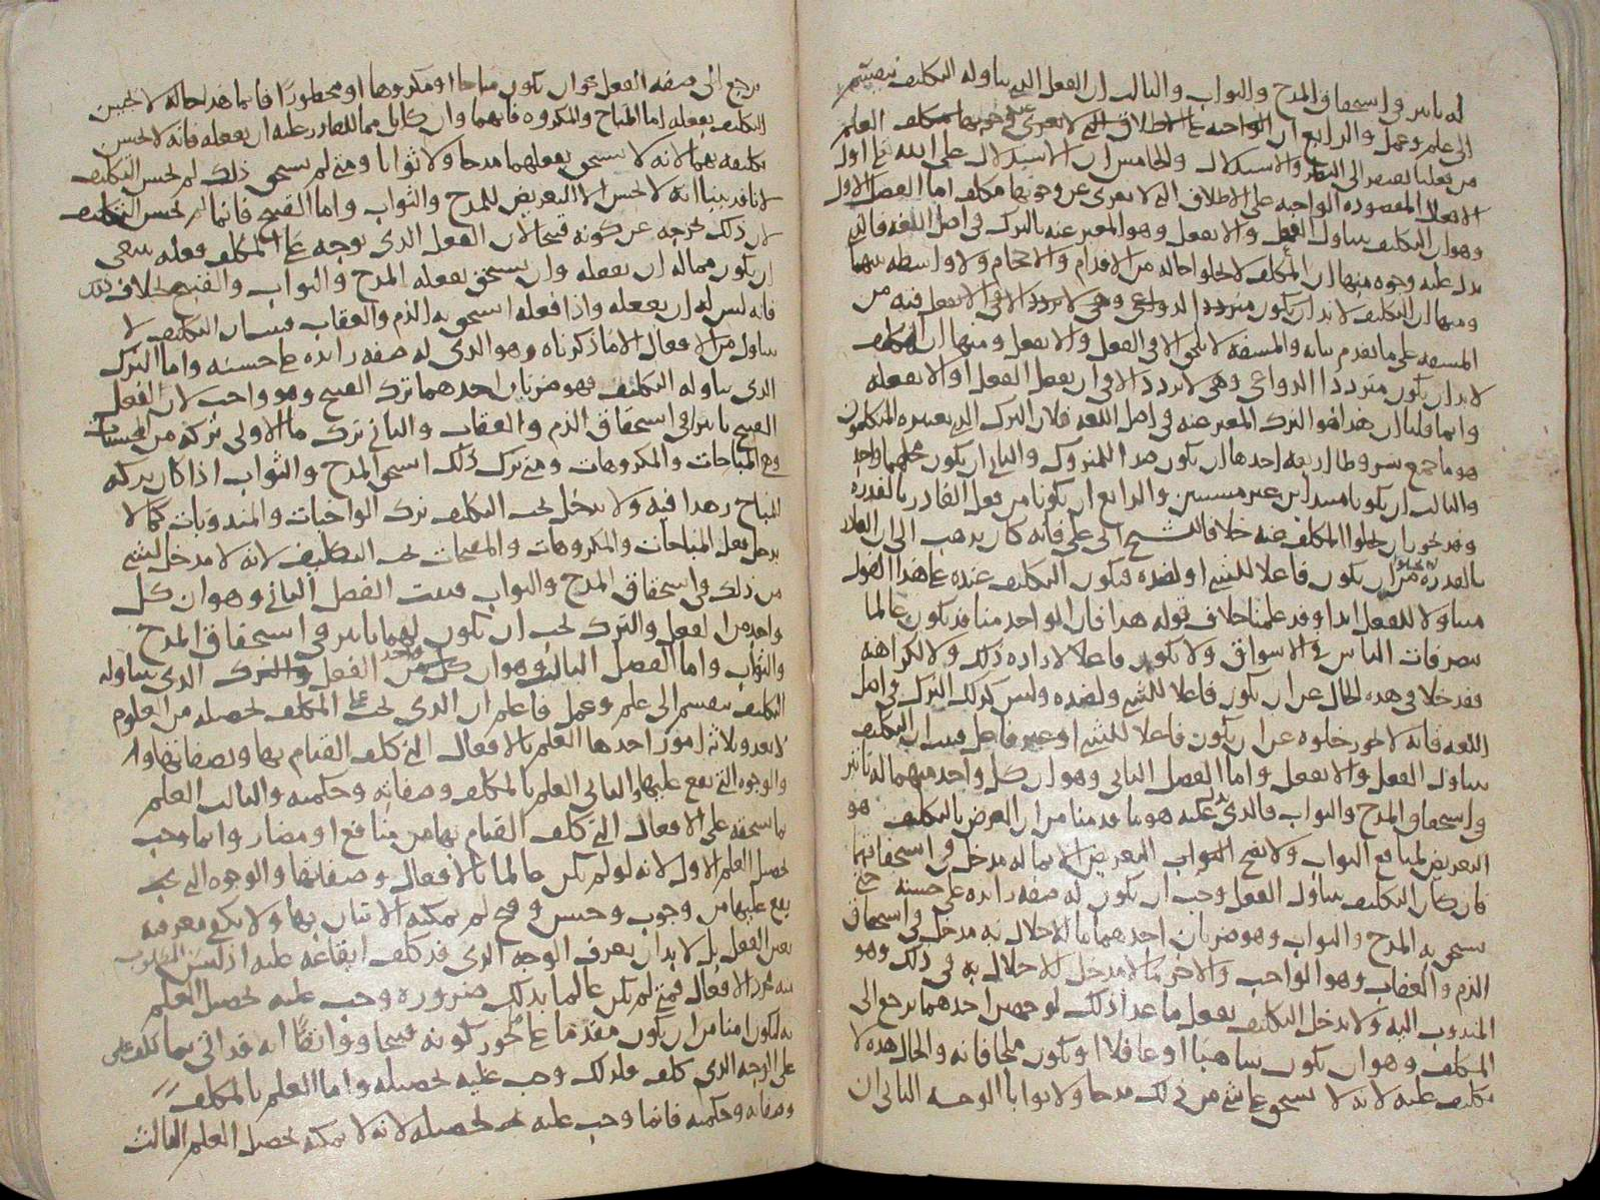 له تاثير في استحقاق المدح والثواب والثالث ان الفعل الذي يتناوله التكليف ينقسم
الى علم وعمل والرابع ان الواجبه على الاطلاق التي لا يعرى عن وجوبها مكلف العلم
من فعلنا يفتقر الى النظر والاستدلال والخامس ان الاستدلال على الله تعالى اول
الافعال المقصوده الواجبه على الاطلاق التي لا يعرى عن وجوبها مكلف اما الفصل الاول
وهو ان التكليف يتناول الفعل والا يفعل وهو المعبر عنه بالترك في اصل اللغه فالذي
يدل عليه وجوه منها ان المكلف لا يخلوا حاله من الاقدام والاحجام ولا واسطه بينهما
ومنها ان التكليف لا بد ان يكون متردد الدواعي وهي لا تردد الا في الا يفعل فيه من
المشقه على ما تقدم بيانه والمشقه لا تلحق الا في الفعل والا يفعل ومنها ان المكلف
لا بد ان يكون مترددا الدواعي وهي لا تردد الا في ان يفعل الفعل او لا يفعله
وانما قلنا ان هذا هو الترك المعبر عنه في اصل اللغه فلان الترك الذي يعتبره المتكلمون
هو ما جمع شروطا اربعه احدها ان يكون ضدا للمتروك والثاني ان يكون محلهما واحد
والثالث ان يكونا مبتداين غير مسببين والرابع ان يكونا من فعل القادر بالقدره
وقد يجوز ان يخلوا المكلف منه خلافا للشيخ ابي علي فانه كان يذهب الى ان القادر
بالقدره لا يخلو من ان يكون فاعلا للشي او لضده فيكون التكليف عنده على هذا القول
متناولا للفعل ابدا وقد علمنا خلاف قوله هذا فان الواحد منا قد يكون عالما
بتصرفات الناس في الاسواق ولا يكون فاعلا لاراده ذلك ولا لكراهته
فقد خلا في هذه الحال عن ان يكون فاعلا للشي ولضده وليس كذلك الترك في اصل
اللغه فانه لا يجوز خلوه عن ان يكون فاعلا للشي او غير فاعل فثبت ان التكليف
يتناول الفعل والا يفعل واما الفصل الثاني وهو ان كل واحد منهما له تاثير
في استحقاق المدح والثواب فالذي يدل عليه هو ما قدمنا من ان الغرض بالتكليف هو
التعريض لمنافع الثواب ولا يصح التعريض الا بما له مدخل في استحقاقها
فان كان التكليف يتناول الفعل وجب ان يكون له صفه زايده على حسنه حتى
يستحق به المدح والثواب وهو ضربان احدهما ما للاخلال به مدخل في استحقاق
الذم والعقاب وهو الواجب والاخر ما لا مدخل للاخلال به في ذلك وهو
المندوب اليه ولا يدخل التكليف بفعل ما عدا ذلك لوجهين احدهما يرجع الى
المكلف وهو ان يكون ساهيا او غافلا او يكون ملجا فانه والحال هذه لا
تكليف عليه لانه لا يستحق على شي من ذلك مدحا ولا ثوابا الوجه الثاني ان
يرجع الى صفه الفعل نحو ان يكون مباحا او مكروها او محظورا فانما هذا حاله لا يحسن
التكليف بفعله اما المباح والمكروه فانهما وان كانا مما للقادر عليه ان يفعله فانه لا يحسن
تكليفه بهما لانه لا يستحق بفعلهما مدحا ولا ثوابا ومتى لم يستحق ذلك لم يحسن التكليف
لانا قد بينا انه لا يحسن الا التعريض للمدح والثواب واما القبيح فانما لم يحسن التكليف
لان ذلك يخرجه عن كونه قبيحا لان الفعل الذي يوجه على المكلف فعله ينبغي
ان يكون مما له ان يفعله وان يستحق بفعله المدح والثواب والقبيح بخلاف ذلك
فانه ليس له ان يفعله واذا فعله استحق به الذم والعقاب فبان ان التكليف لا
يتناول من الافعال الا ما ذكرناه وهو الذي له صفه زايده على حسنه واما الترك
الذي يتناوله التكليف فهو ضربان احدهما ترك القبيح وهو واجب لان لفعل
القبيح تاثيرا في استحقاق الذم والعقاب والثاني ترك ما الاولى تركه من المحسنات
وهو المباحات والمكروهات ومتى ترك ذلك استحق المدح والثواب اذا كان تركه
المباح زهدا فيه ولا يدخل تحت التكليف ترك الواجبات والمندوبات كما لا
يدخل فعل المباحات والمكروهات والمقبحات تحت التكليف لانه لا مدخل لشي
من ذلك في استحقاق المدح والثواب فثبت الفصل الثاني وهو ان كل
واحد من الفعل والترك يجب ان يكون لهما تاثير في استحقاق المدح
والثواب واما الفصل الثالث وهو ان كل واحد من الفعل والترك الذي يتناوله
التكليف ينقسم الى علم وعمل فاعلم ان الذي يجب على المكلف تحصيله من العلوم
لا يعدو ثلاثه امور احدها العلم بالافعال التي كلف القيام بها وبصفاتها و
والوجوه التي تقع عليها والثاني العلم بالمكلف وصفاته وحكمته والثالث العلم
بما يستحقه على الافعال التي كلف القيام بها من منافع او مضار وانما وجب
تحصيل العلم الاول لانه لو لم يكن عالما بالافعال وصفاتها والوجوه التي
يقع عليها من وجوب وحسن وقبح لم يمكنه الاتيان بها ولا يكفي معرفه
نفس الفعل بل لا بد ان يعرف الوجه الذي قد كلف ايقاعه عليه اذ ليس المطلوب
منه مجرد الافعال فمتى لم يكن عالما بذلك ضروره وجب عليه تحصيل العلم
به ليكون امنا من ان يكون مقدما على ما يجوز كونه قبيحا وواثقا انه قد اتى بما كلف على
على الوجه الذي كلف فلذلك وجب عليه تحصيله واما العلم بالمكلف
وصفاته وحكمته فانما وجب عليه تحصيله لانه لا يمكنه تحصيل العلم الثالث